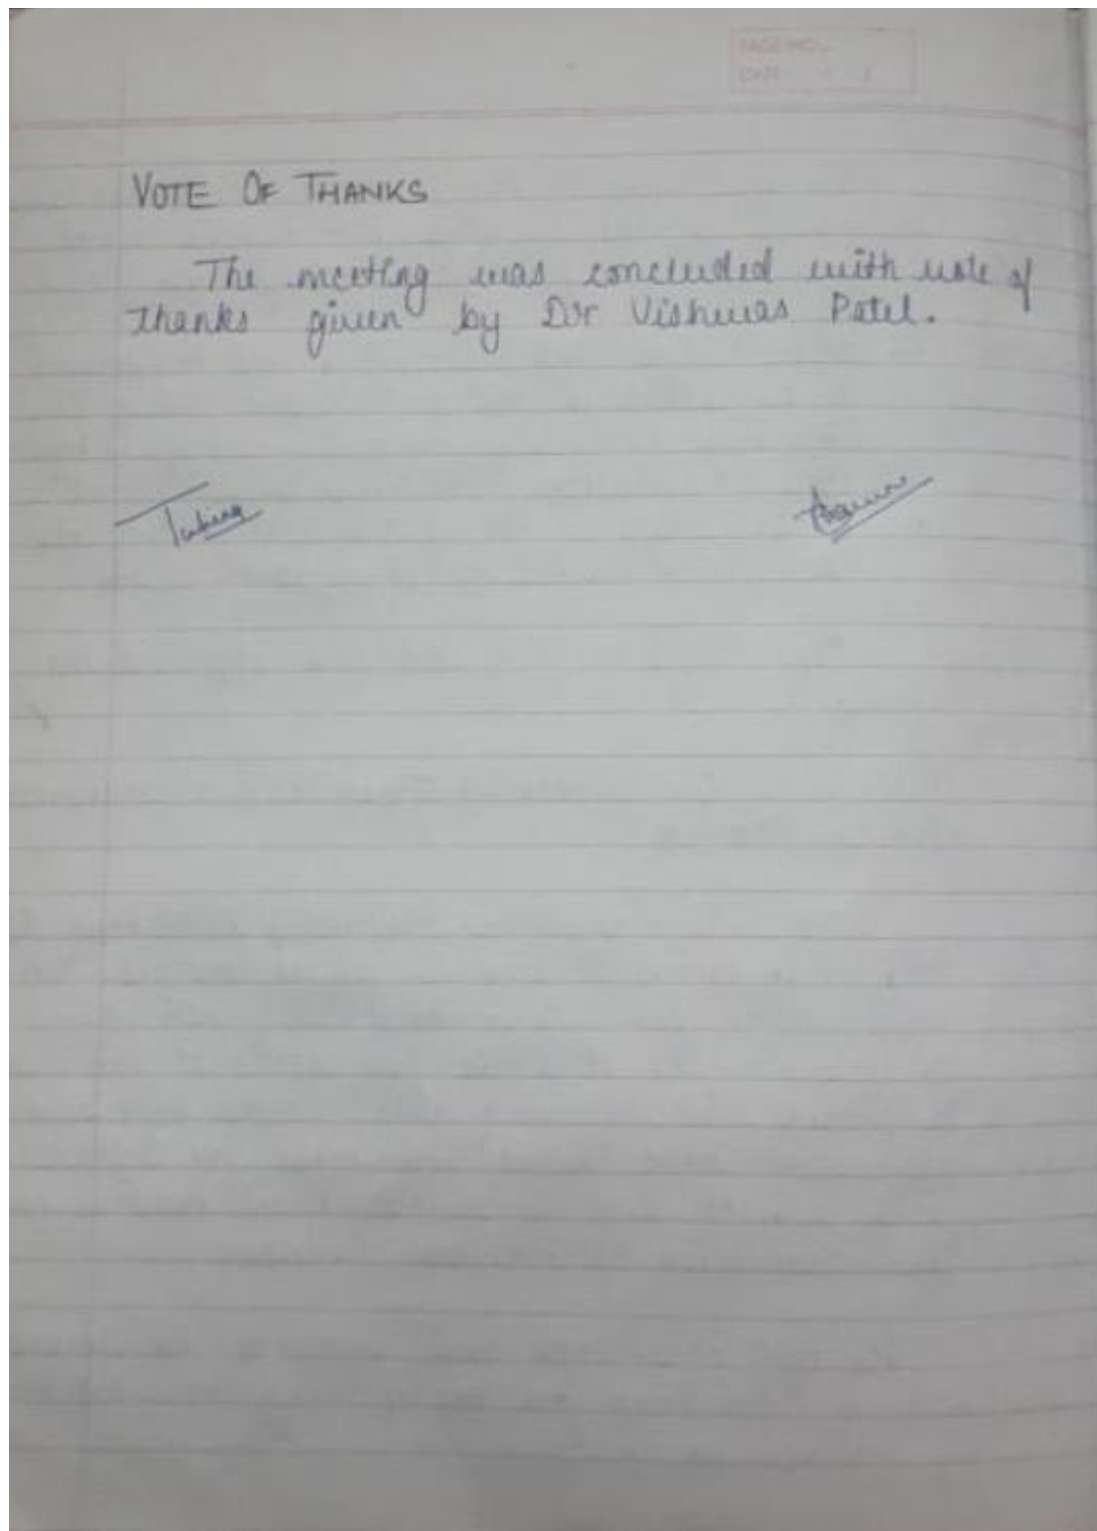 PAGE NO.
DATE / /
VOTE OF THANKS
The meeting was concluded with vote of
thanks given by Dr Vishwas Patel.